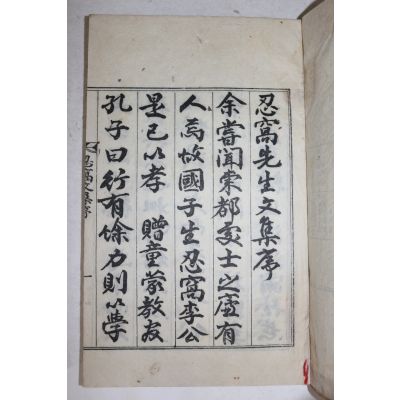 忍窩先生文集序
余嘗聞東都處士之廬有
人焉故國子生忍窩李公
是已以孝 贈童蒙教官
孔子曰行有餘力則以學
忍窩文集序
一